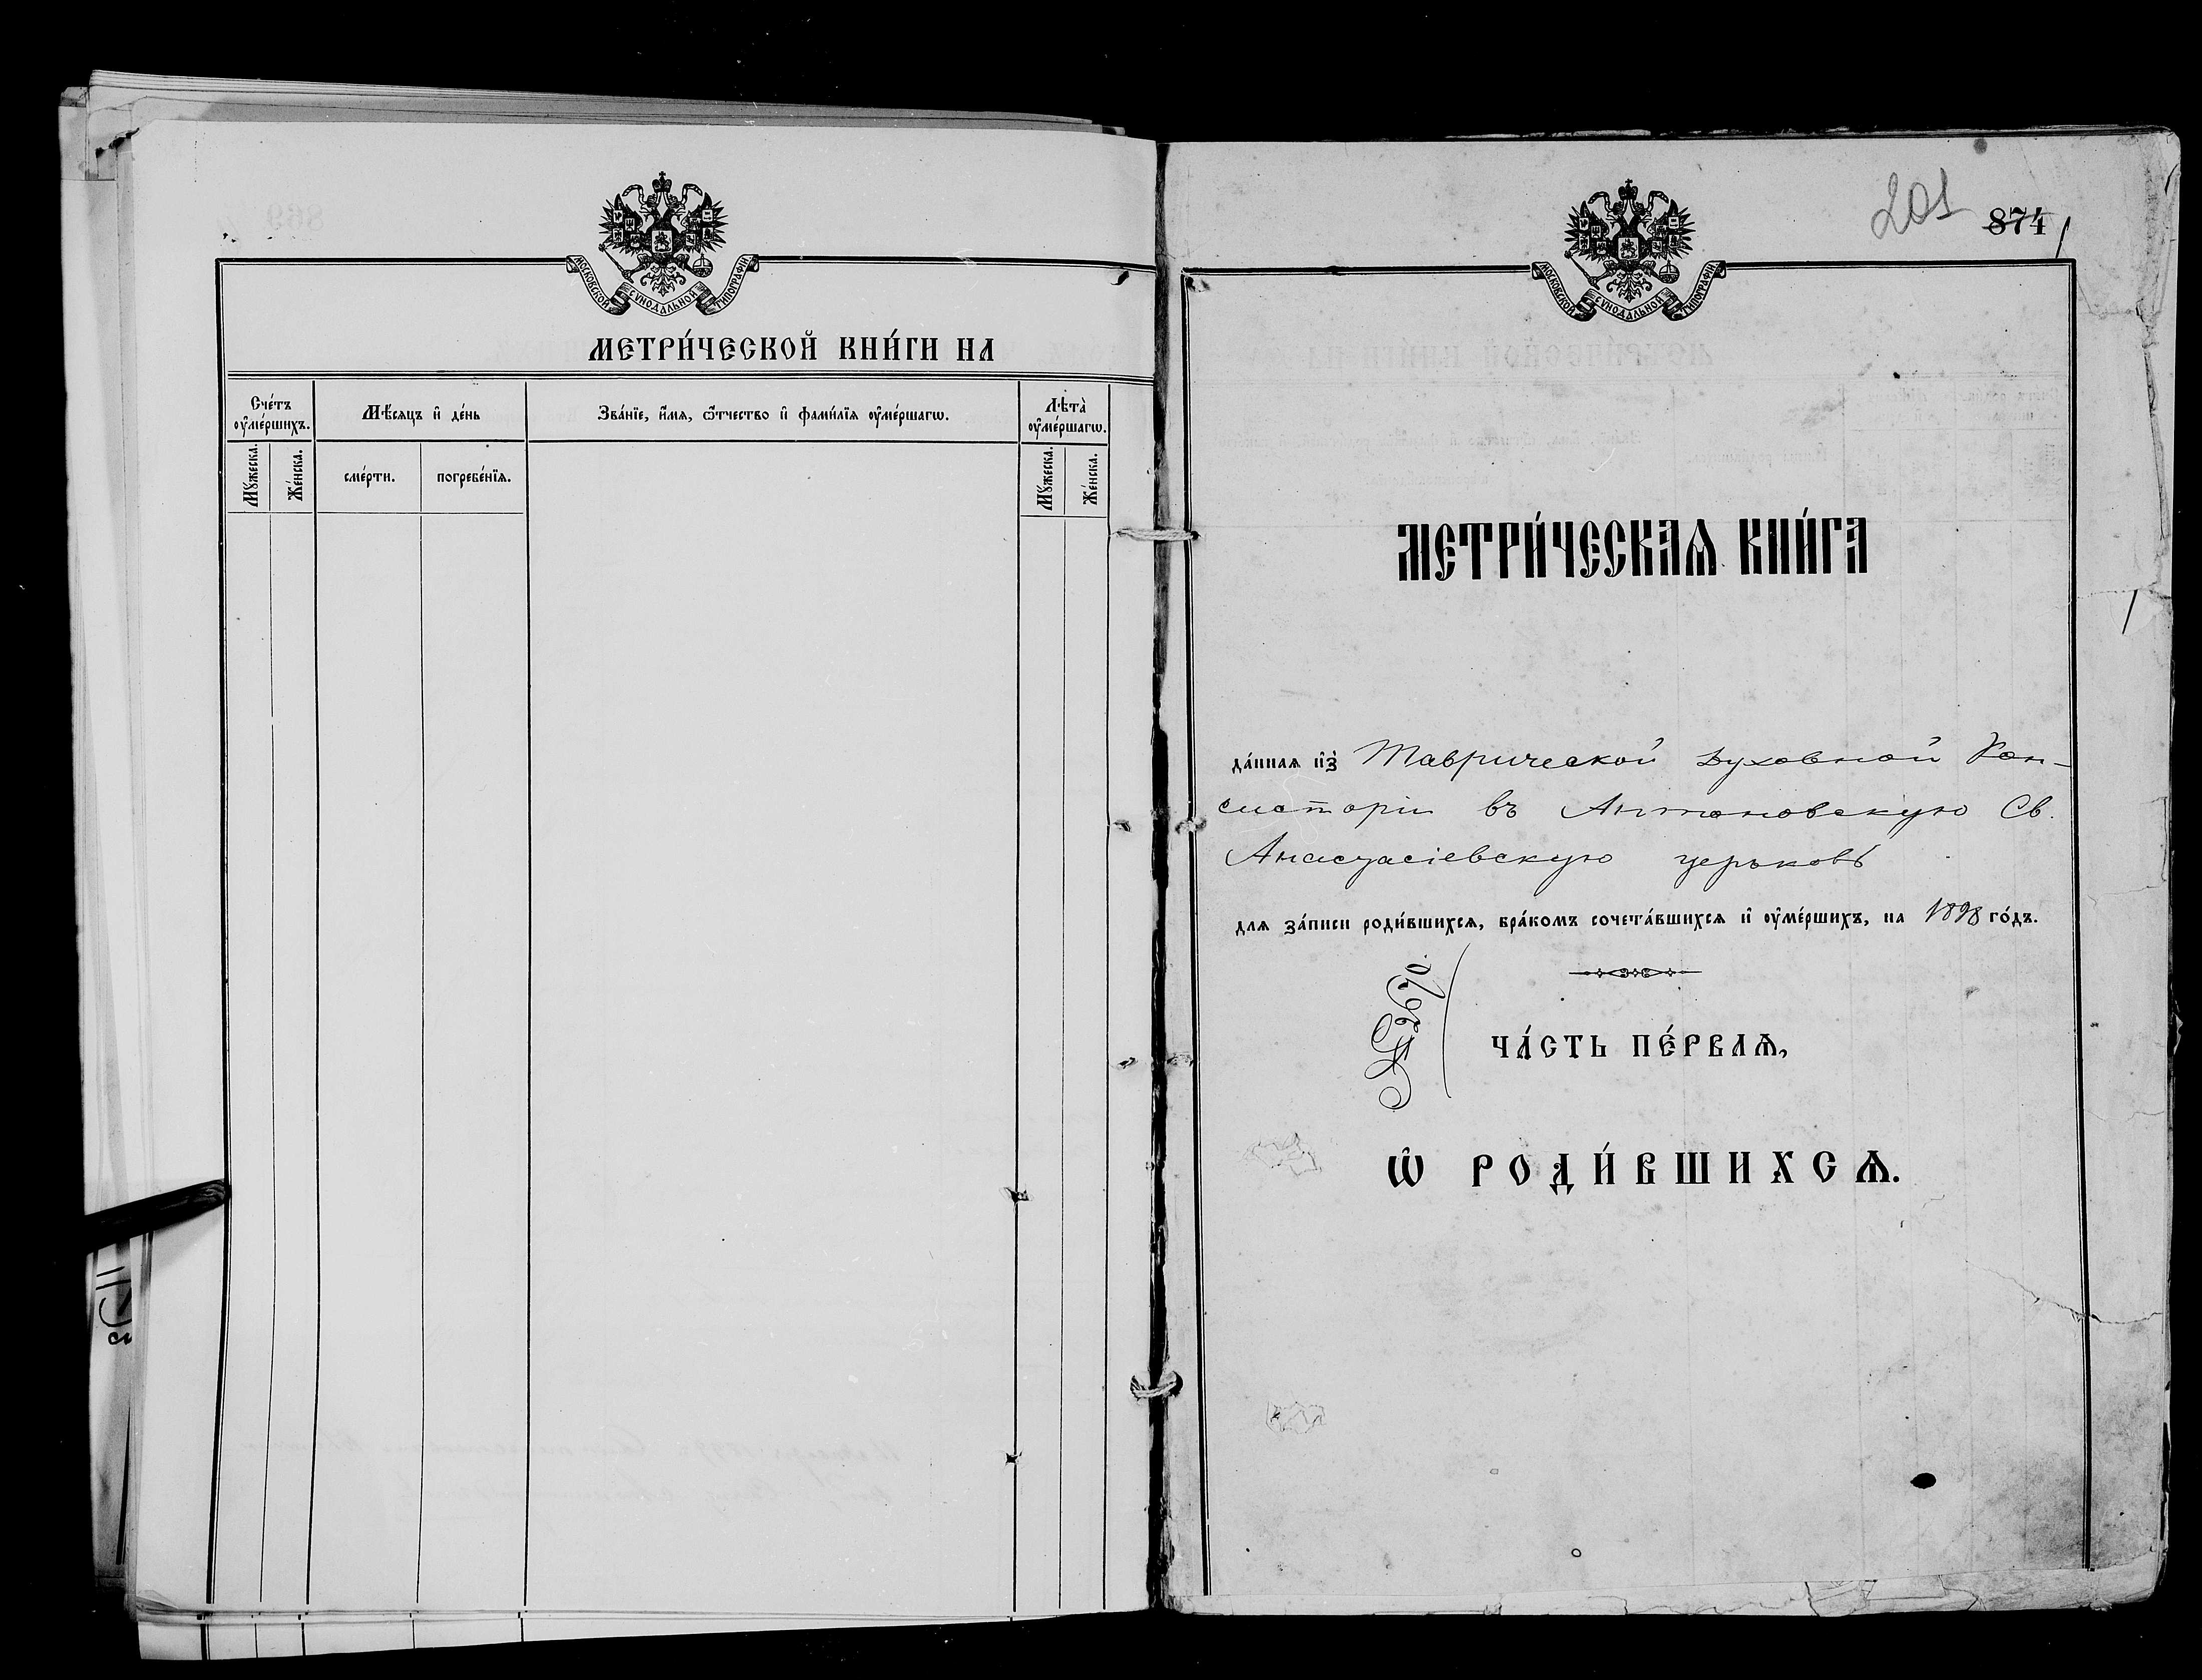 МОСКОВСКОЙ СУНОДАЛЬНОЙ ТИПОГРАФІИ
МЕТРИ́ЧЕСКОЙ КНИ́ГИ НА
Сче́тъ ᲂу҆ме́ршихъ.
Мѣ́сяцъ и҆ де́нь
Зва́нїе, и҆́мя, ѻ҆́тчество и҆ фами́лїя ᲂу҆ме́ршагѡ.
Лѣта̀ ᲂу҆ме́ршагѡ.
Мꙋ́жеска.
Же́нска.
сме́рти.
погребе́нїя.
Мꙋ́жеска.
Же́нска.
201
874
МОСКОВСКОЙ СУНОДАЛЬНОЙ ТИПОГРАФІИ
МЕТРИ́ЧЕСКАѦ КНИ́ГА
да́нная и҆з̾ Таврической Духовной Кон-
систоріи въ Антоновскую Св.
Анастасіевскую церковь
для за́писи роди́вшихся, бра́комъ сочета́вшихся и҆ ᲂу҆ме́ршихъ, на 1898 го́дъ.
ЧА́СТЬ ПЕ́РВАѦ,
Ѡ҆ РОДИ́ВШИХСѦ.